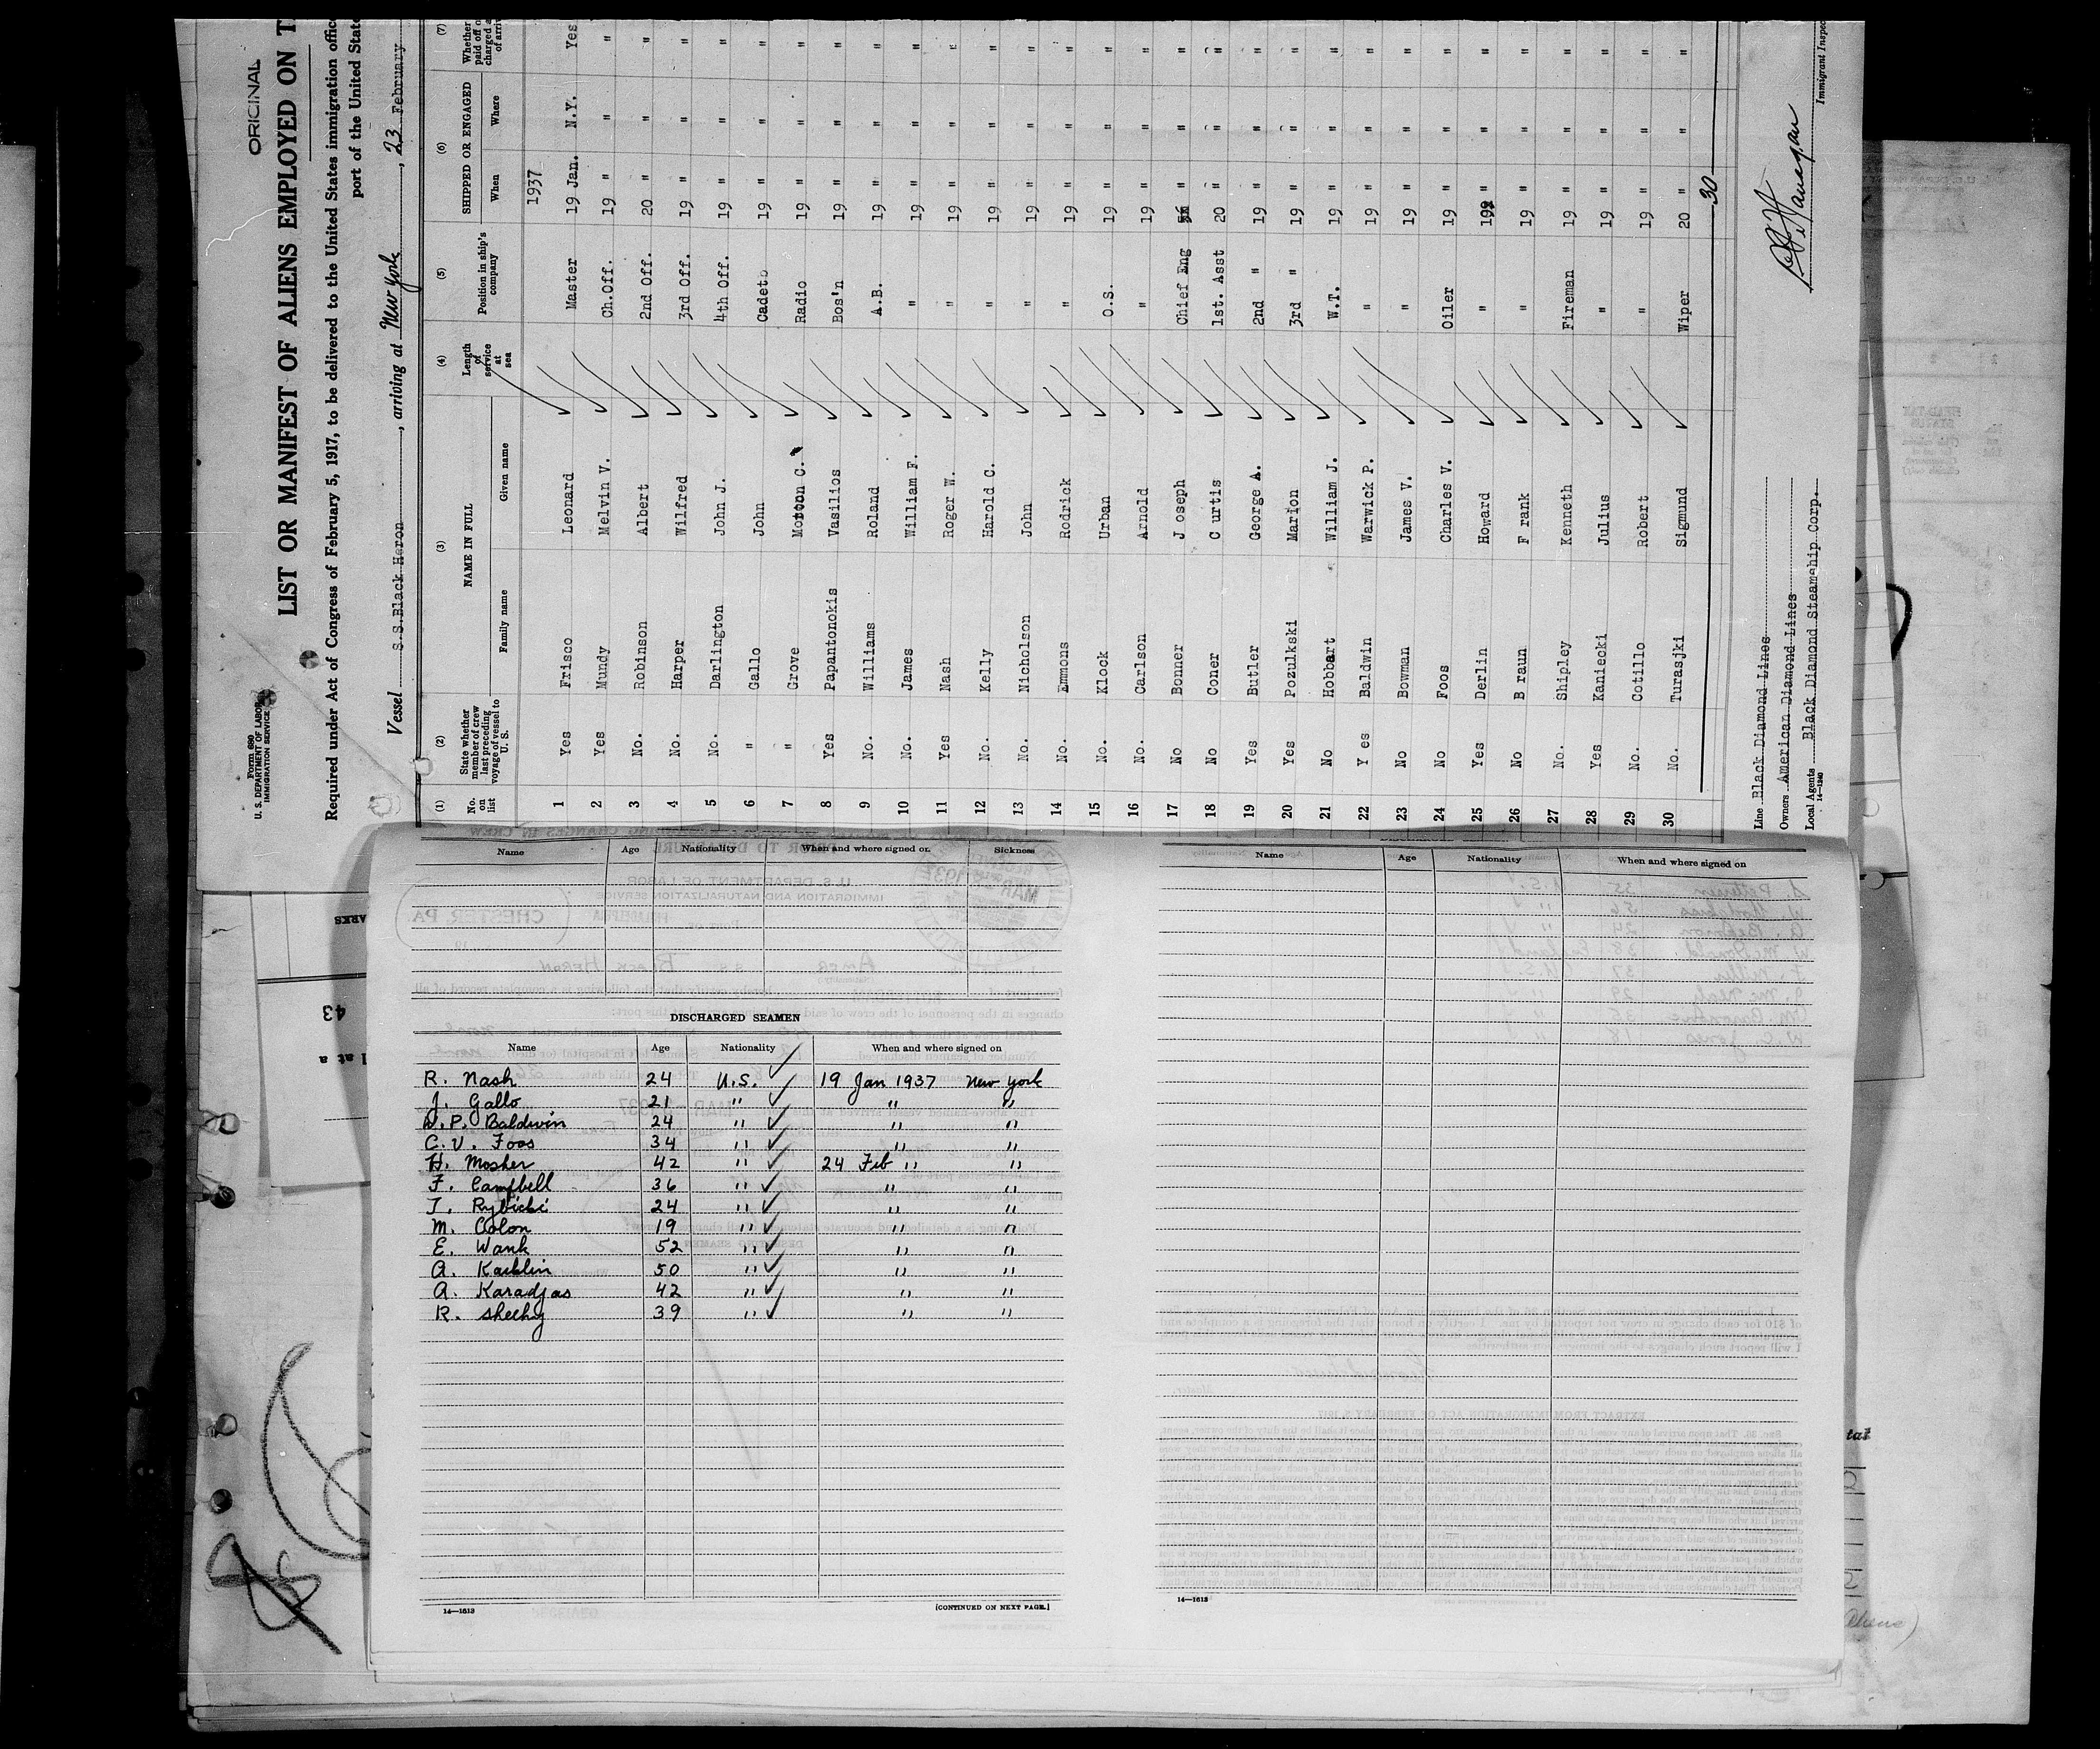 ORIGINAL
Form 680
U. S. DEPARTMENT OF LABOR
IMMIGRATION SERVICE
LIST OR MANIFEST OF ALIENS EMPLOYED ON T
Required under Act of Congress of February 5, 1917, to be delivered to the United States immigration offic
port of the United State
Vessel S.S.Black Heron, arriving at New York, 23 February
(1) (2) (3) (4) (5) (6) (7)
No. on list State whether member of crew last preceding voyage of vessel to U. S. NAME IN FULL Family name Given name Length of service at sea Position in ship's company SHIPPED OR ENGAGED When Where Whether paid off o charged a of arriv
1937
1 Yes Frisco Leonard Master 19 Jan. N.Y. Yes
2 Yes Mundy Melvin V. Ch.Off. 19 " " "
3 No. Robinson Albert 2nd Off. 20 " " "
4 No. Harper Wilfred 3rd Off. 19 " " "
5 No. Darlington John J. 4th Off. 19 " " "
6 " Gallo John Cadet 19 " " "
7 " Grove Morton C. Radio 19 " " "
8 Yes Papantonokis Vasilios Bos'n 19 " " "
9 No. Williams Roland A.B. 19 " " "
10 No. James William F. " 19 " " "
11 Yes Nash Roger W. " 19 " " "
12 No. Kelly Harold C. " 19 " " "
13 No. Nicholson John " 19 " " "
14 No. Emmons Rodrick " 19 " " "
15 No. Klock Urban O.S. 19 " " "
16 No. Carlson Arnold " 19 " " "
17 No Bonner J oseph Chief Eng " " "
18 No Coner C urtis 1st. Asst 20 " " "
19 Yes Butler George A. 2nd " 19 " " "
20 Yes Pozulkski Marion 3rd " 19 " " "
21 No Hobbart William J. W.T. 19 " " "
22 Y es Baldwin Warwick P. " 19 " " "
23 No Bowman James V. " 19 " " "
24 No Foos Charles V. Oiler 19 " " "
25 Yes Derlin Howard " 19 " " "
26 No B raun F rank " 19 " " "
27 No. Shipley Kenneth Fireman 19 " " "
28 Yes Kaniecki Julius " 19 " " "
29 No. Cotillo Robert " 19 " " "
30 No. Turasjki Sigmund Wiper 20 " " "
30
Line Black Diamond Lines
Owners American Diamond Lines
Local Agents Black Diamond Steamship Corp.
14-1240
Immigrant Inspec
Name Age Nationality When and where signed on Sickness
DISCHARGED SEAMEN
Name Age Nationality When and where signed on
R. Nash 24 U.S. 19 Jan 1937 New York
J. Gallo 21 " " "
W.P. Baldwin 24 " " "
C.V. Foos 34 " " "
H. Mosher 42 " 24 Feb " "
F. Campbell 36 " " "
T. Rybicki 24 " " "
M. Colon 19 " " "
E. Wank 52 " " "
A. Kaiblin 50 " " "
A. Karadjas 42 " " "
R. Sheehy 39 " " "
14—1613
[CONTINUED ON NEXT PAGE.]
Name Age Nationality When and where signed on
14—1613
43